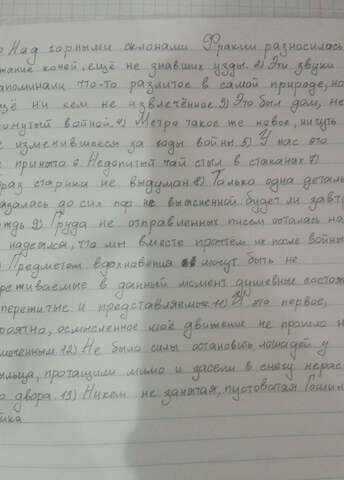 Над горными склонами Фракии разносилась
жание коней, ещё не знавших узды. 2) Эти звуки
апоминали что-то разлитое в самой природе, но
щё ни кем не извлечённое. 3) Это был дом, не
онутый войной. 4) Метро такое же новое, ничуть
е изменившееся за годы войны. 5) У нас это
е принято 6. Недопитый чай стыл в стаканах 7)
раз старика не выдуман. 8) Только одна деталь
азалась до сих пор не выясненной: будет ли завтр
ждь 9) Груда не отправленных писем осталась на
надеялся, что мы вместе прочтём их после войны
Предметом вдохновения могут быть не
реживаемые в данный момент душевные состоя
пережитые и представляемые 11) И это первое,
роятно, осмысленное моё движение не прошло н
меченным 12) Не было силы остановить лошадей у
ыльца, протащили мимо и засели в снегу нерас
го двора 13) Никем не занятая, пустоватая Гошин
йка